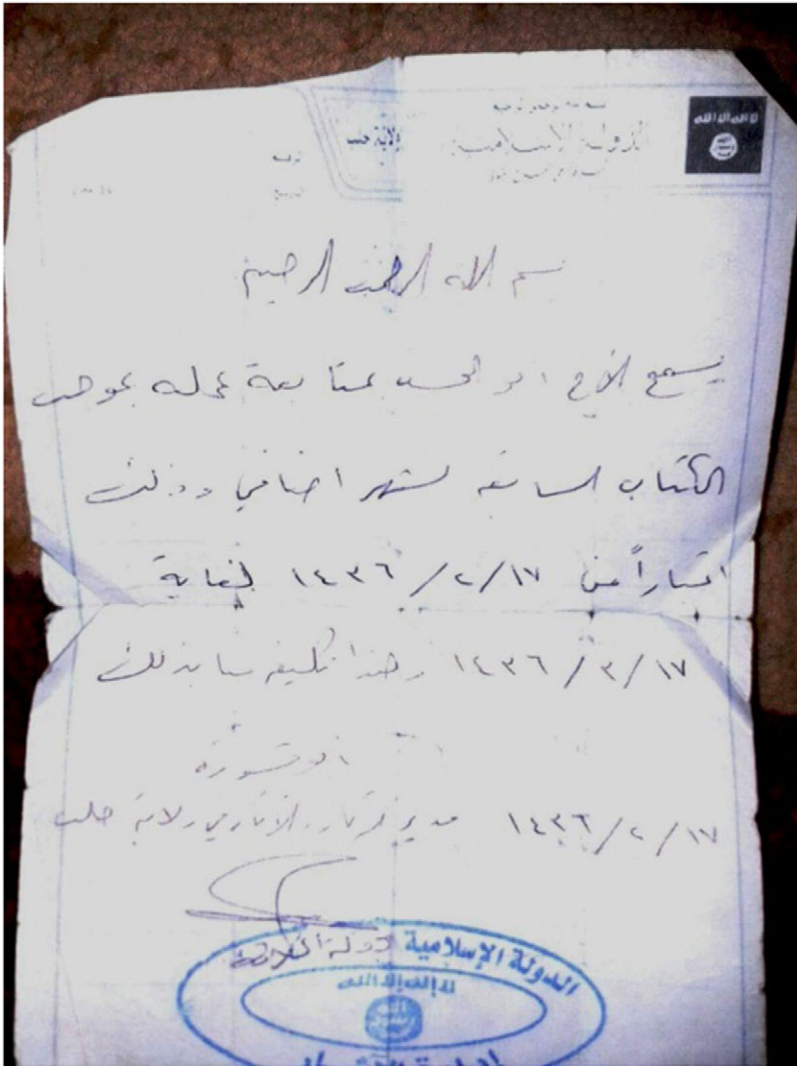 لا اله الا الله
الدولة الإسلامية
ولاية حلب
بسم الله الرحمن الرحيم
يسمح للأخ أبو الحسن بمتابعة عمله بموجب
الكتاب السابق لشهر اضافي وذلك
اعتباراً من ١٤٣٦/٢/١٧ لغاية
١٤٣٦/٣/١٧ وهذا تكليف منا بذلك
أبو قسورة
١٤٣٦/٢/١٧ مدير الآثار في ولاية حلب
الدولة الإسلامية دولة الخلافة
لا إله إلا الله